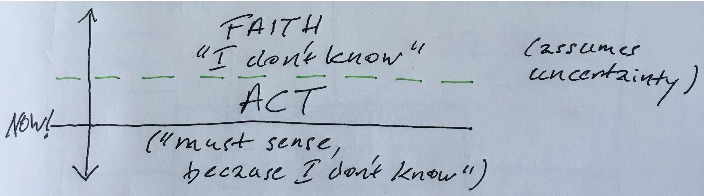 FAITH
"I don't know"
(assumes
uncertainty)
ACT
NOW!
("must sense,
because I don't know")